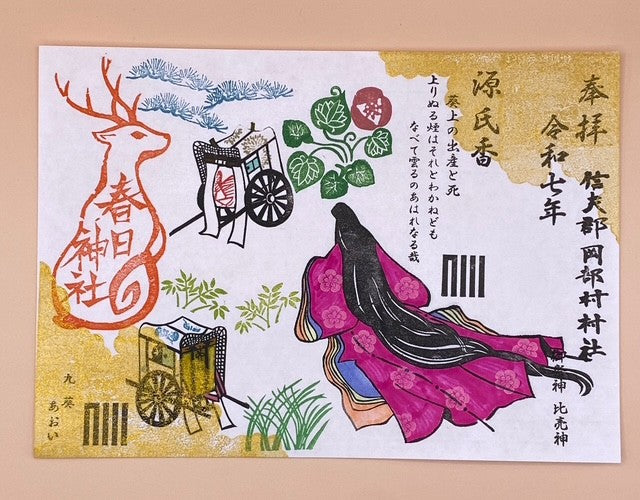 奉拝
信夫郡岡部村村社
令和七年
源氏香
葵上の出産と死
上りぬる煙はそれとわかねども
なべて雲ゐのあはれなる哉
春日
神社
御祭神 比売神
九 葵
あおい